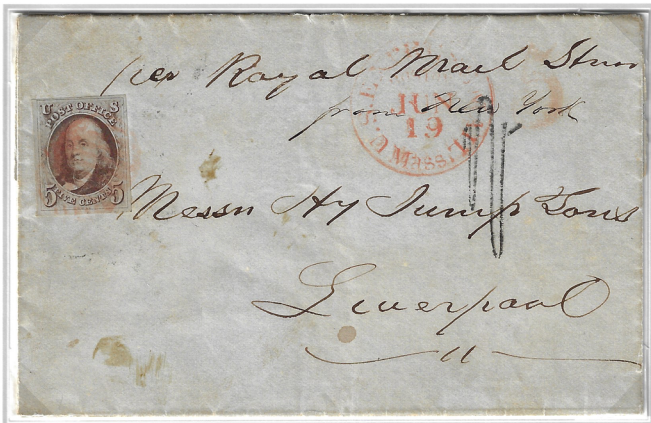 per Royal Mail Stmr
from New York
U S
POST OFFICE
5 FIVE CENTS 5
JUN
19
Mass.
Messrs Hy Jump & Sons
Liverpool